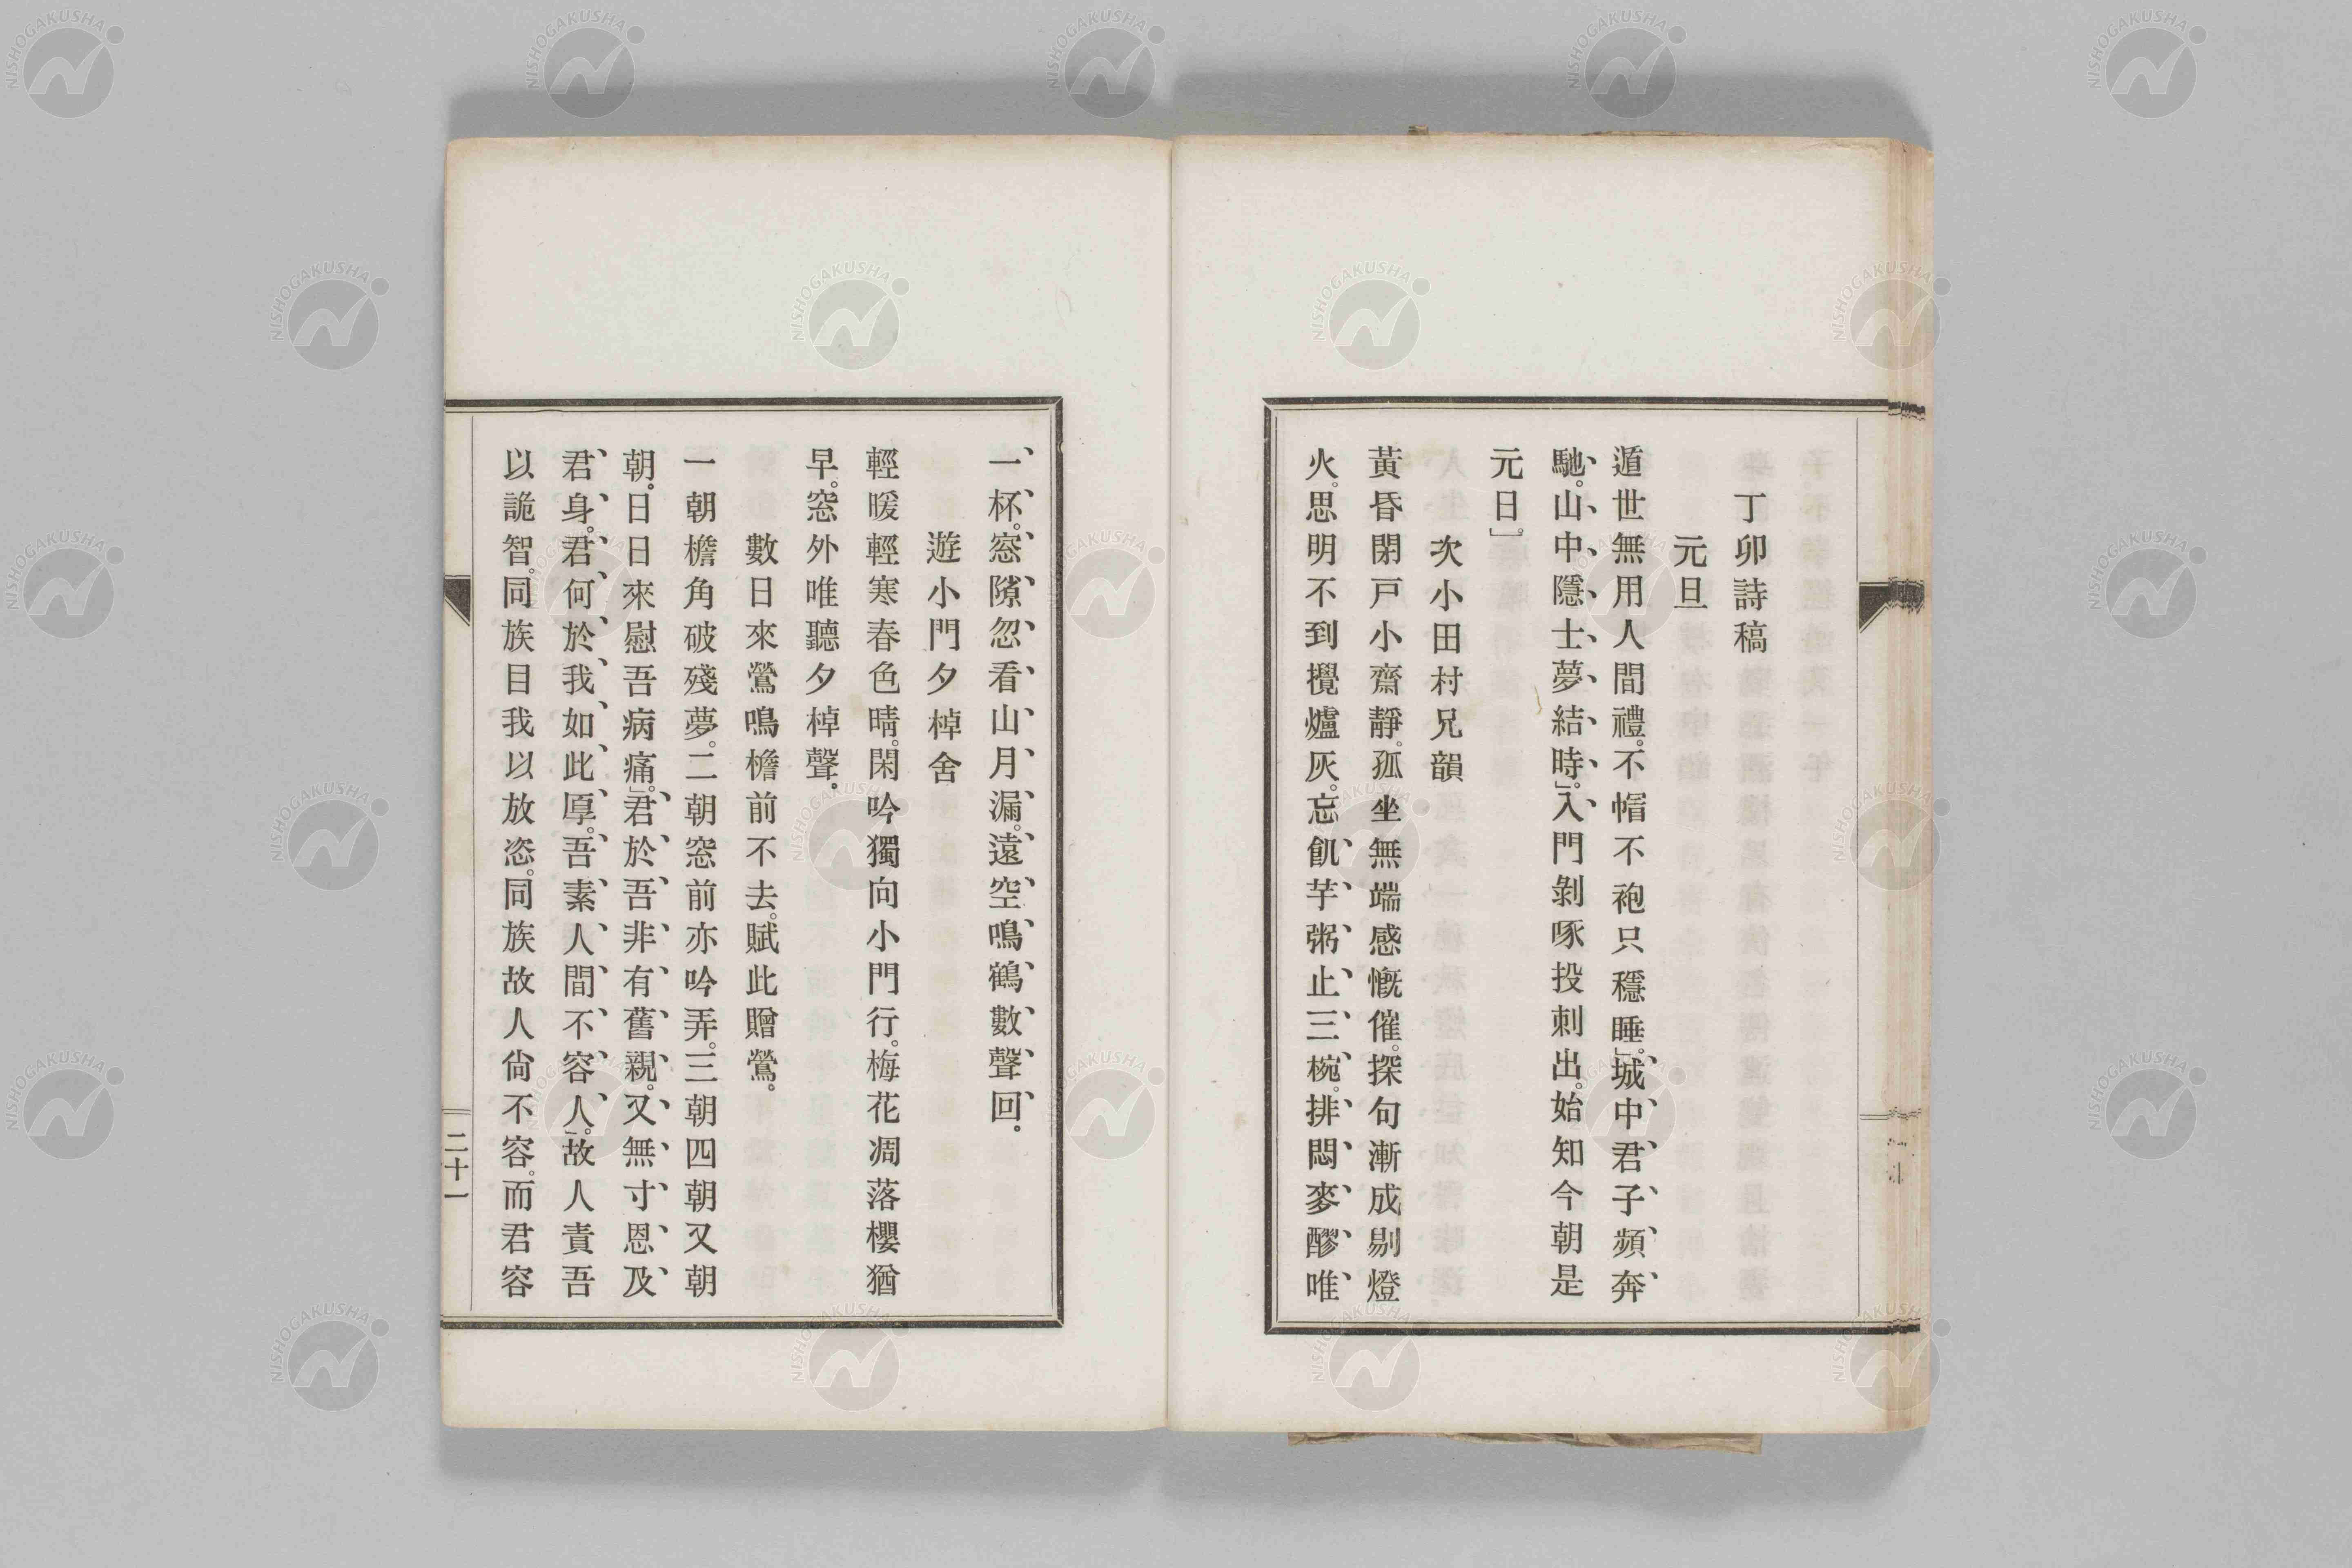 丁卯詩稿
元旦
遁世無用人間禮。不帽不袍只穩睡」。城中君子頻奔
馳。山中隱士夢結時」。入門剝啄投刺出。始知今朝是
元日」。
次小田村兄韻
黃昏閉戸小齋靜。孤坐無端感慨催。探句漸成剔燈
火。思明不到攪爐灰。忘飢芋粥止三椀。排悶麥醪唯
一杯。窓隙忽看山月漏。遠空鳴鶴數聲回。
遊小門夕棹舍
輕暖輕寒春色晴。閑吟獨向小門行。梅花凋落櫻猶
早。窓外唯聽夕棹聲。
數日來鶯鳴檐前不去。賦此贈鶯。
一朝檐角破殘夢。二朝窓前亦吟弄。三朝四朝又朝
朝。日日來慰吾病痛」。君於吾非有舊親。又無寸恩及
君身。君何於我如此厚。吾素人間不容人」。故人責吾
以詭智。同族目我以放恣。同族故人尙不容。而君容
二十一
NISHOGAKUSHA